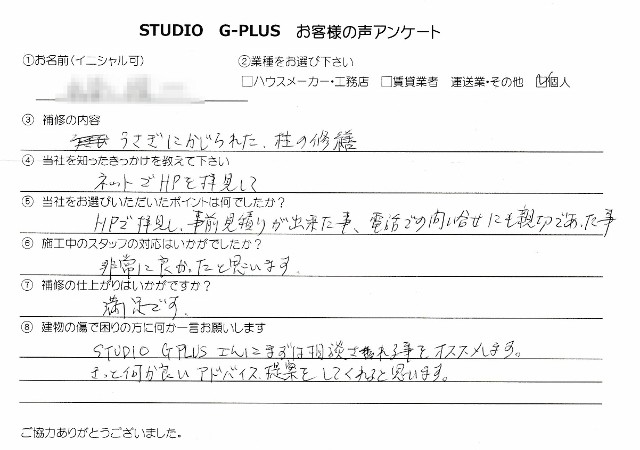 STUDIO G-PLUS お客様の声アンケート
①お名前(イニシャル可) ②業種をお選び下さい
□ハウスメーカー・工務店 □賃貸業者 運送業・その他 ☑個人
③ 補修の内容
うさぎにかじられた、柱の修繕
④ 当社を知ったきっかけを教えて下さい
ネットでHPを拝見して
⑤ 当社をお選びいただいたポイントは何でしたか?
HPで拝見し、事前見積りが出来た事、電話での問い合せにも親切であった事
⑥ 施工中のスタッフの対応はいかがでしたか?
非常に良かったと思います。
⑦ 補修の仕上がりはいかがですか?
満足です。
⑧ 建物の傷で困りの方に何か一言お願いします
STUDIO G PLUS さんにまずは相談される事をオススメします。
きっと何か良いアドバイス、提案をしてくれると思います。
ご協力ありがとうございました。